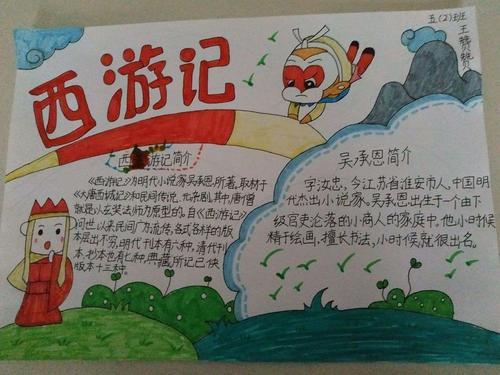 五(2)班
王赞赞
西游记
西游记简介
《西游记》为明代小说家吴承恩所著,取材于
《大唐西域记》和民间传说、元杂剧。其中唐僧
就是以玄奘法师为原型的。自《西游记》
问世以来民间广为流传,各式各样的版
本层出不穷,明代刊本有六种,清代刊
本、抄本也有七种,典藏所记已佚
版本十三种。
吴承恩简介
字汝忠,今江苏省淮安市人,中国明
代杰出小说家,吴承恩出生于一个由下
级官吏沦落的小商人的家庭中,他小时候
精于绘画,擅长书法,小时候就很出名。